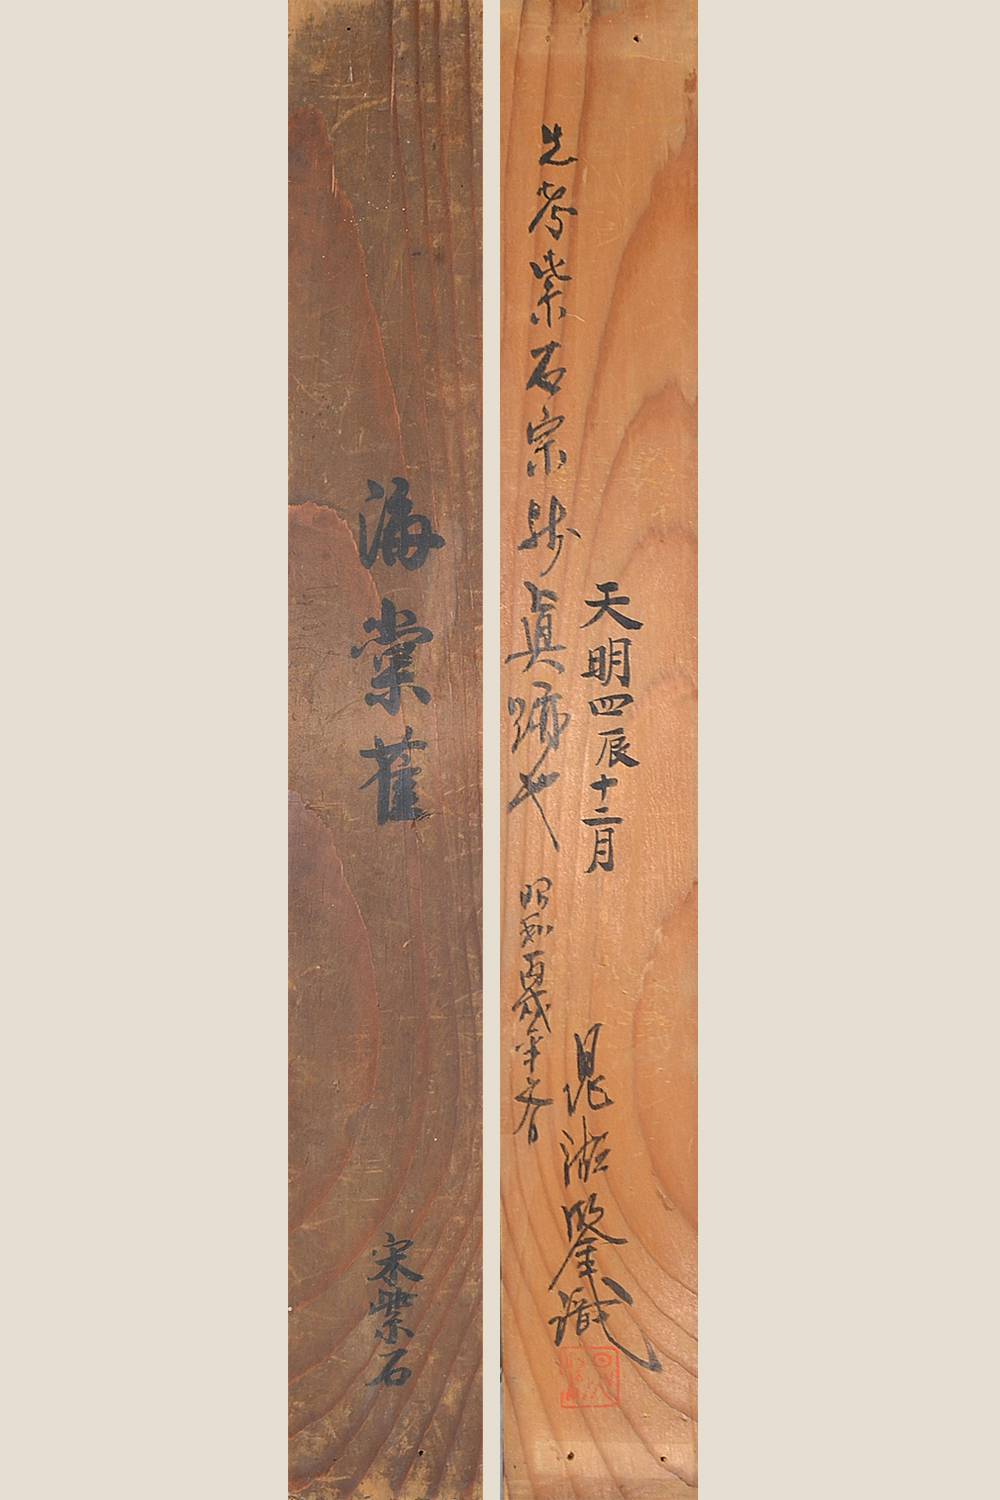 海棠雀
宋紫石
天明四辰十二月
先考紫石宗師真蹟也
昭和丙戌年春
晃湖鑒識